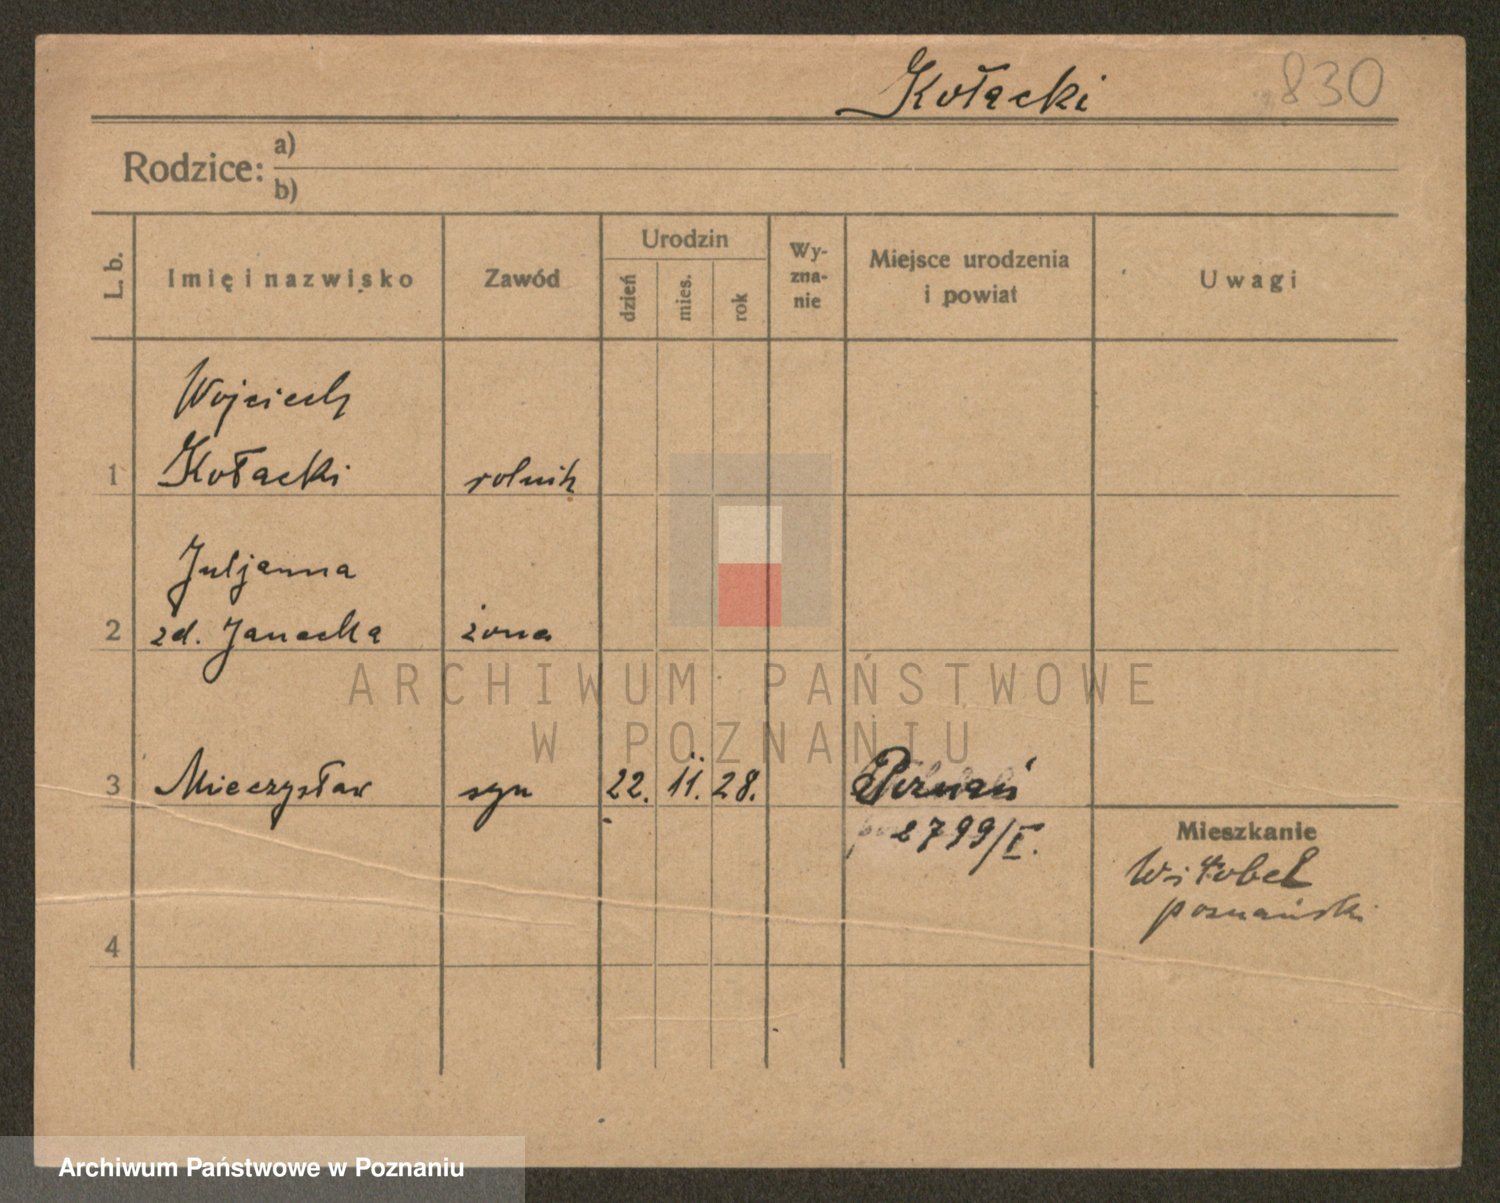 Kołacki 830
Rodzice: a)
b)
L. b.
Imię i nazwisko
Zawód
Urodzin
dzień
mies.
rok
Wy-
zna-
nie
Miejsce urodzenia
i powiat
Uwagi
Wojciech
1 Kołacki rolnik
Juljanna
2 zd. Janecka żona
ARCHIWUM PAŃSTWOWE
W POZNANIU
3 Mieczysław syn 22. 11. 28. Poznań
2799/I.
Mieszkanie
Wiłobel
poznański
4
Archiwum Państwowe w Poznaniu